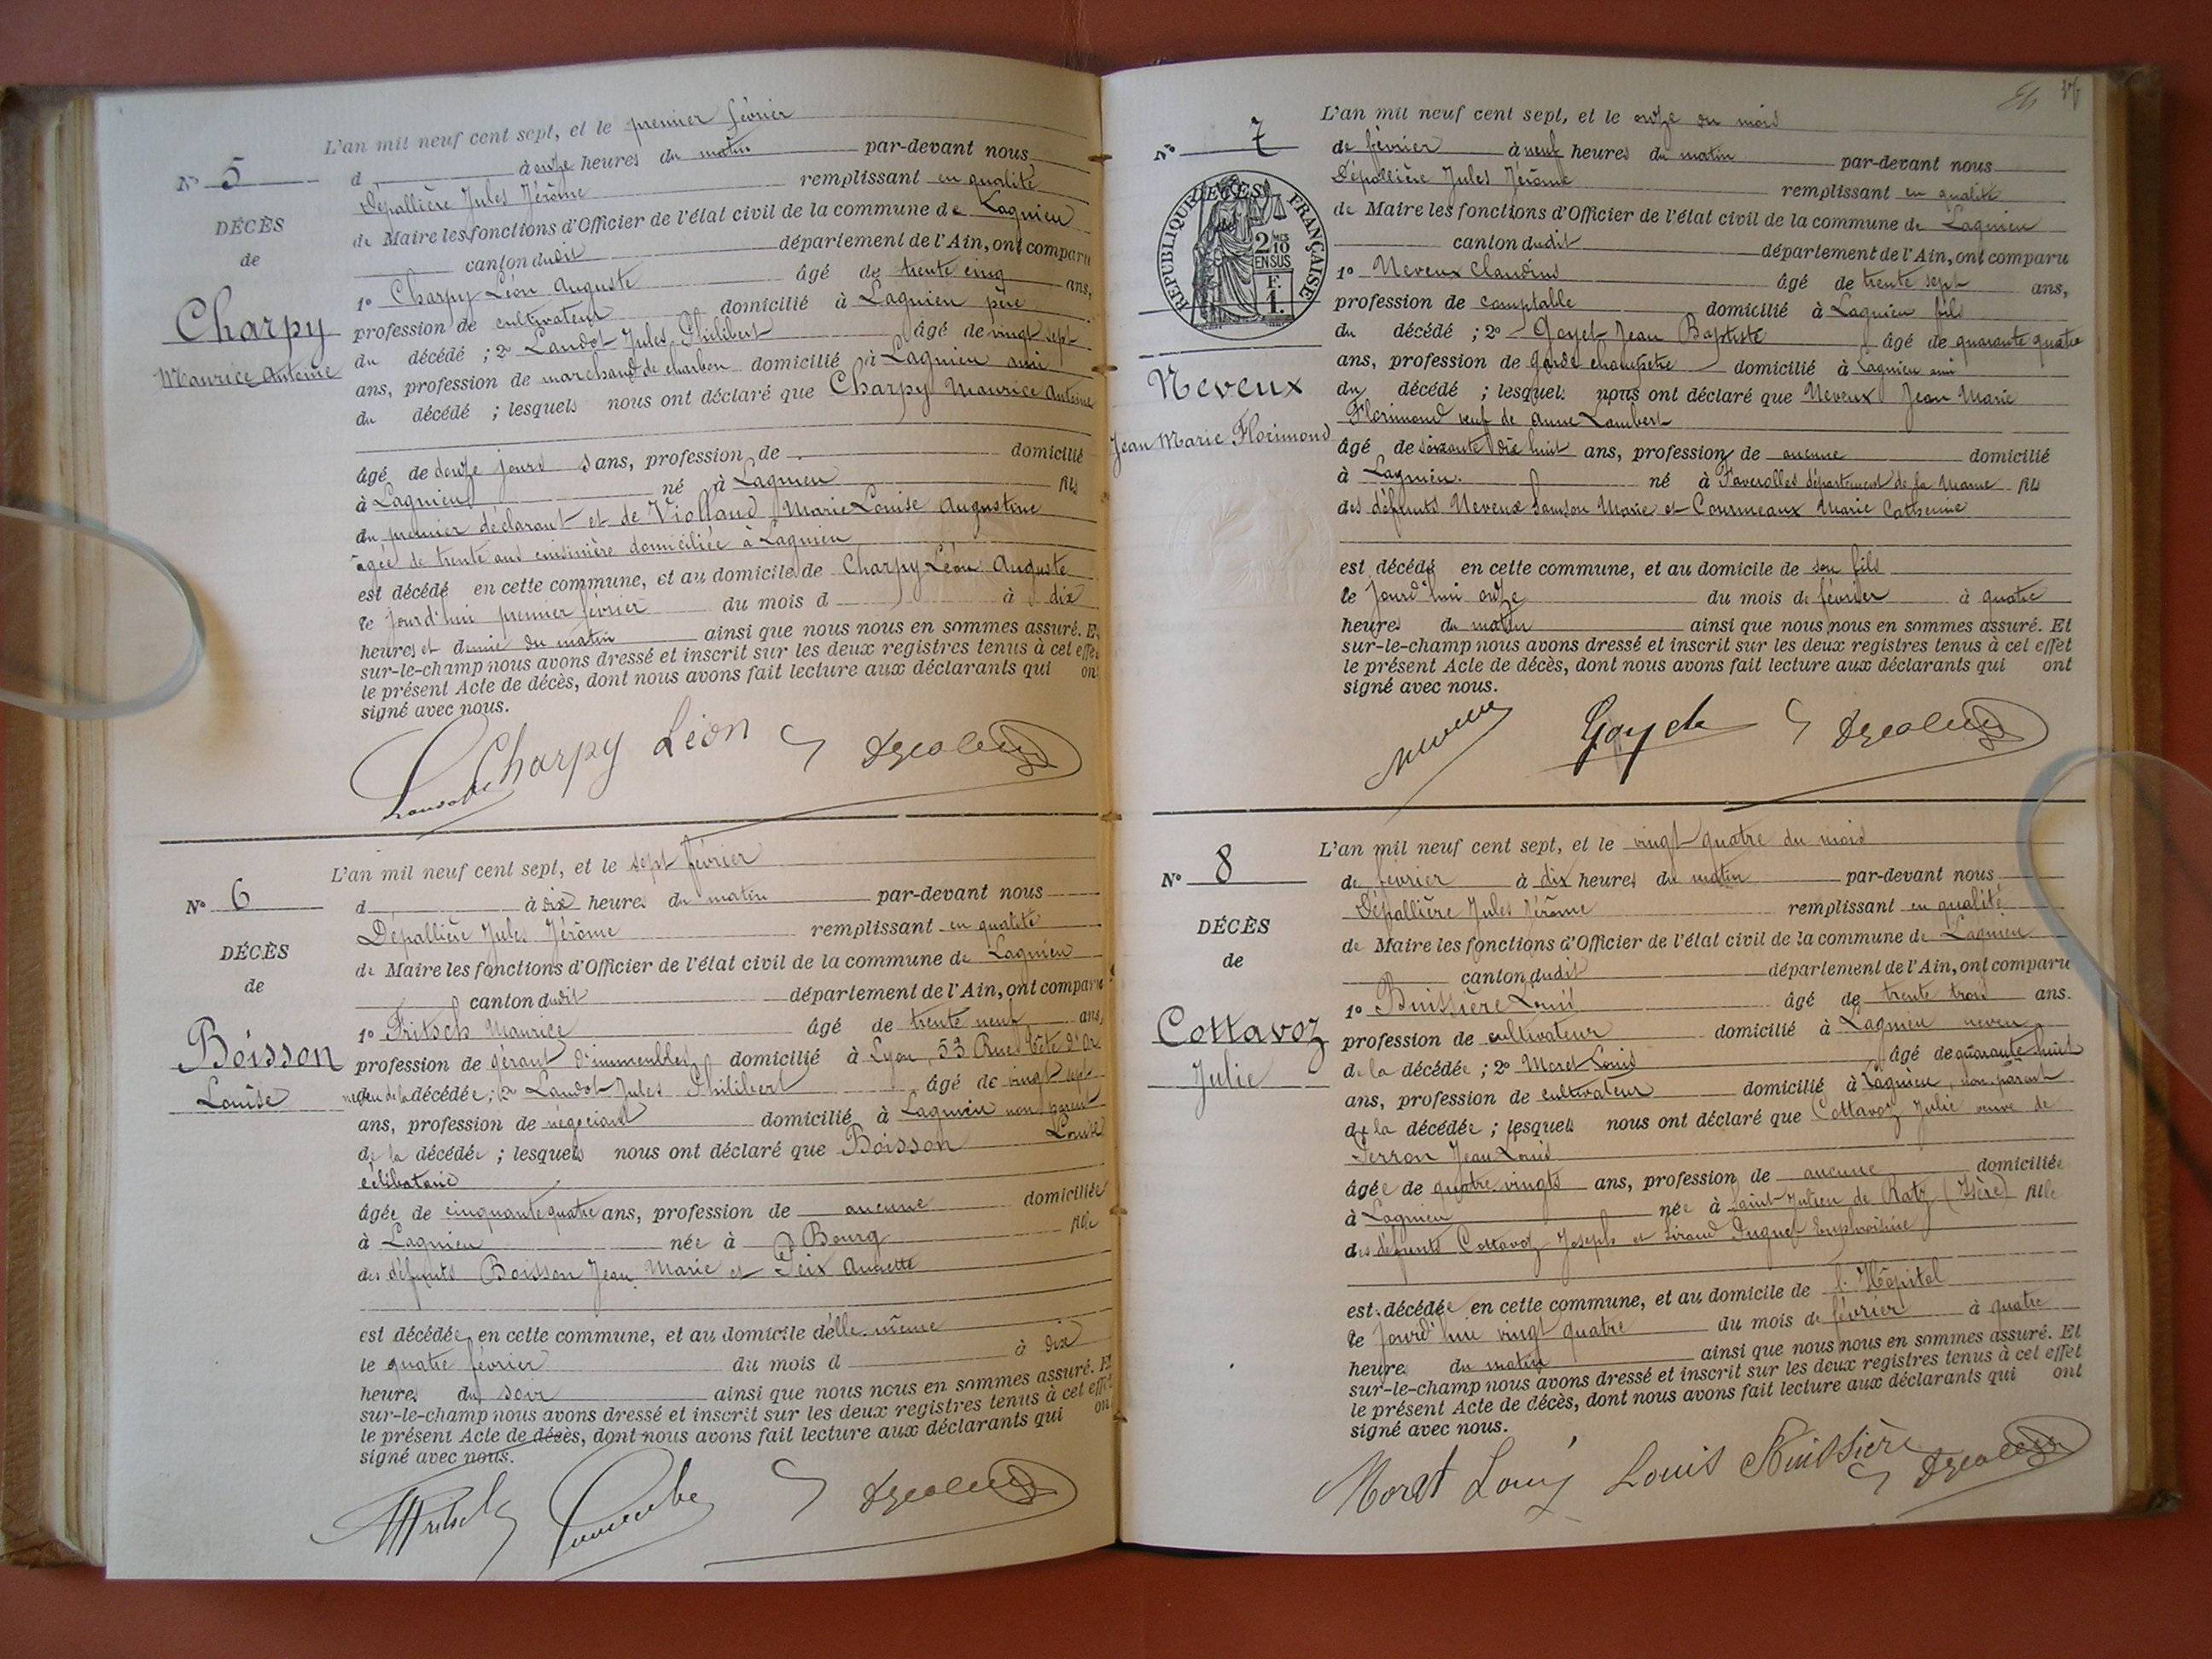 L'an mil neuf cent sept, et le premier février
N° 5
d à onze heures du matin par-devant nous
Dépallière Jules Jérôme remplissant en qualité
DÉCÈS
de Maire les fonctions d'Officier de l'état civil de la commune de Lagnieu
de
canton dudit département de l'Ain, ont comparu
1° Charpy Léon Auguste âgé de trente cinq ans,
Charpy
profession de cultivateur domicilié à Lagnieu père
Maurice Antoine
du décédé ; 2° Landot Jules Philibert âgé de vingt sept
ans, profession de marchand de charbon domicilié à Lagnieu ami
du décédé ; lesquels nous ont déclaré que Charpy Maurice Antoine
âgé de douze jours ans, profession de domicilié
à Lagnieu né à Lagnieu fils
du premier déclarant et de Violland Marie Louise Augustine
âgée de trente ans cuisinière domiciliée à Lagnieu
est décédé en cette commune, et au domicile de Charpy Léon Auguste
le jourd'hui premier février du mois d à dix
heures et demie du matin ainsi que nous nous en sommes assuré. Et
sur-le-champ nous avons dressé et inscrit sur les deux registres tenus à cet effet
le présent Acte de décès, dont nous avons fait lecture aux déclarants qui ont
signé avec nous.
Charpy Léon
L'an mil neuf cent sept, et le sept février
N° 6
d à dix heures du matin par-devant nous
Dépallière Jules Jérôme remplissant en qualité
DÉCÈS
de Maire les fonctions d'Officier de l'état civil de la commune de Lagnieu
de
canton dudit département de l'Ain, ont comparu
1° Fritsch Maurice âgé de trente neuf ans,
Boisson
profession de gérant d'immeubles domicilié à Lyon, 53 Rue Tête d'Or
Louise
neveu de la décédée ; 2° Landot Jules Philibert âgé de vingt sept
ans, profession de négociant domicilié à Lagnieu non parent
de la décédée ; lesquels nous ont déclaré que Boisson Louise
célibataire
âgée de cinquante quatre ans, profession de aucune domiciliée
à Lagnieu née à Bourg fille
des défunts Boisson Jean Marie et Peix Annette
est décédée en cette commune, et au domicile d'elle même
le quatre février du mois d à dix
heures du soir ainsi que nous nous en sommes assuré. Et
sur-le-champ nous avons dressé et inscrit sur les deux registres tenus à cet effet
le présent Acte de décès, dont nous avons fait lecture aux déclarants qui ont
signé avec nous.
L'an mil neuf cent sept, et le onze du mois
N° 7
de février à neuf heures du matin par-devant nous
Dépallière Jules Jérôme remplissant en qualité
de Maire les fonctions d'Officier de l'état civil de la commune de Lagnieu
RÉPUBLIQUE FRANÇAISE
2/10 EN SUS
F. 1.
canton dudit département de l'Ain, ont comparu
1° Neveux Claudius âgé de trente sept ans,
profession de comptable domicilié à Lagnieu fils
du décédé ; 2° Goyet Jean Baptiste âgé de quarante quatre
Neveux
ans, profession de garde champêtre domicilié à Lagnieu ami
du décédé ; lesquels nous ont déclaré que Neveux Jean Marie
Jean Marie Florimond
Florimond veuf de Anne Lambert
âgé de soixante dix huit ans, profession de aucune domicilié
à Lagnieu. né à Faverolles département de la Marne fils
des défunts Neveux Samson Marie et Courmeaux Marie Catherine
est décédé en cette commune, et au domicile de son fils
le jourd'hui onze du mois de février à quatre
heures du matin ainsi que nous nous en sommes assuré. Et
sur-le-champ nous avons dressé et inscrit sur les deux registres tenus à cet effet
le présent Acte de décès, dont nous avons fait lecture aux déclarants qui ont
signé avec nous.
L'an mil neuf cent sept, et le vingt quatre du mois
N° 8
de février à dix heures du matin par-devant nous
Dépallière Jules Jérôme remplissant en qualité
DÉCÈS
de Maire les fonctions d'Officier de l'état civil de la commune de Lagnieu
de
canton dudit département de l'Ain, ont comparu
1° Buissière Louis âgé de trente trois ans.
Cottavoz
profession de cultivateur domicilié à Lagnieu neveu
Julie
de la décédée ; 2° Moret Louis âgé de quarante huit
ans, profession de cultivateur domicilié à Lagnieu, non parent
de la décédée ; lesquels nous ont déclaré que Cottavoz Julie veuve de
Perron Jean Louis
âgée de quatre vingts ans, profession de aucune domiciliée
à Lagnieu née à Saint-Julien de Ratz (Isère) fille
des défunts Cottavoz Joseph et Giraud Euphroisine
est décédée en cette commune, et au domicile de l'Hôpital
le jourd'hui vingt quatre du mois de février à quatre
heures du matin ainsi que nous nous en sommes assuré. Et
sur-le-champ nous avons dressé et inscrit sur les deux registres tenus à cet effet
le présent Acte de décès, dont nous avons fait lecture aux déclarants qui ont
signé avec nous.
Moret Louis Louis Buissière